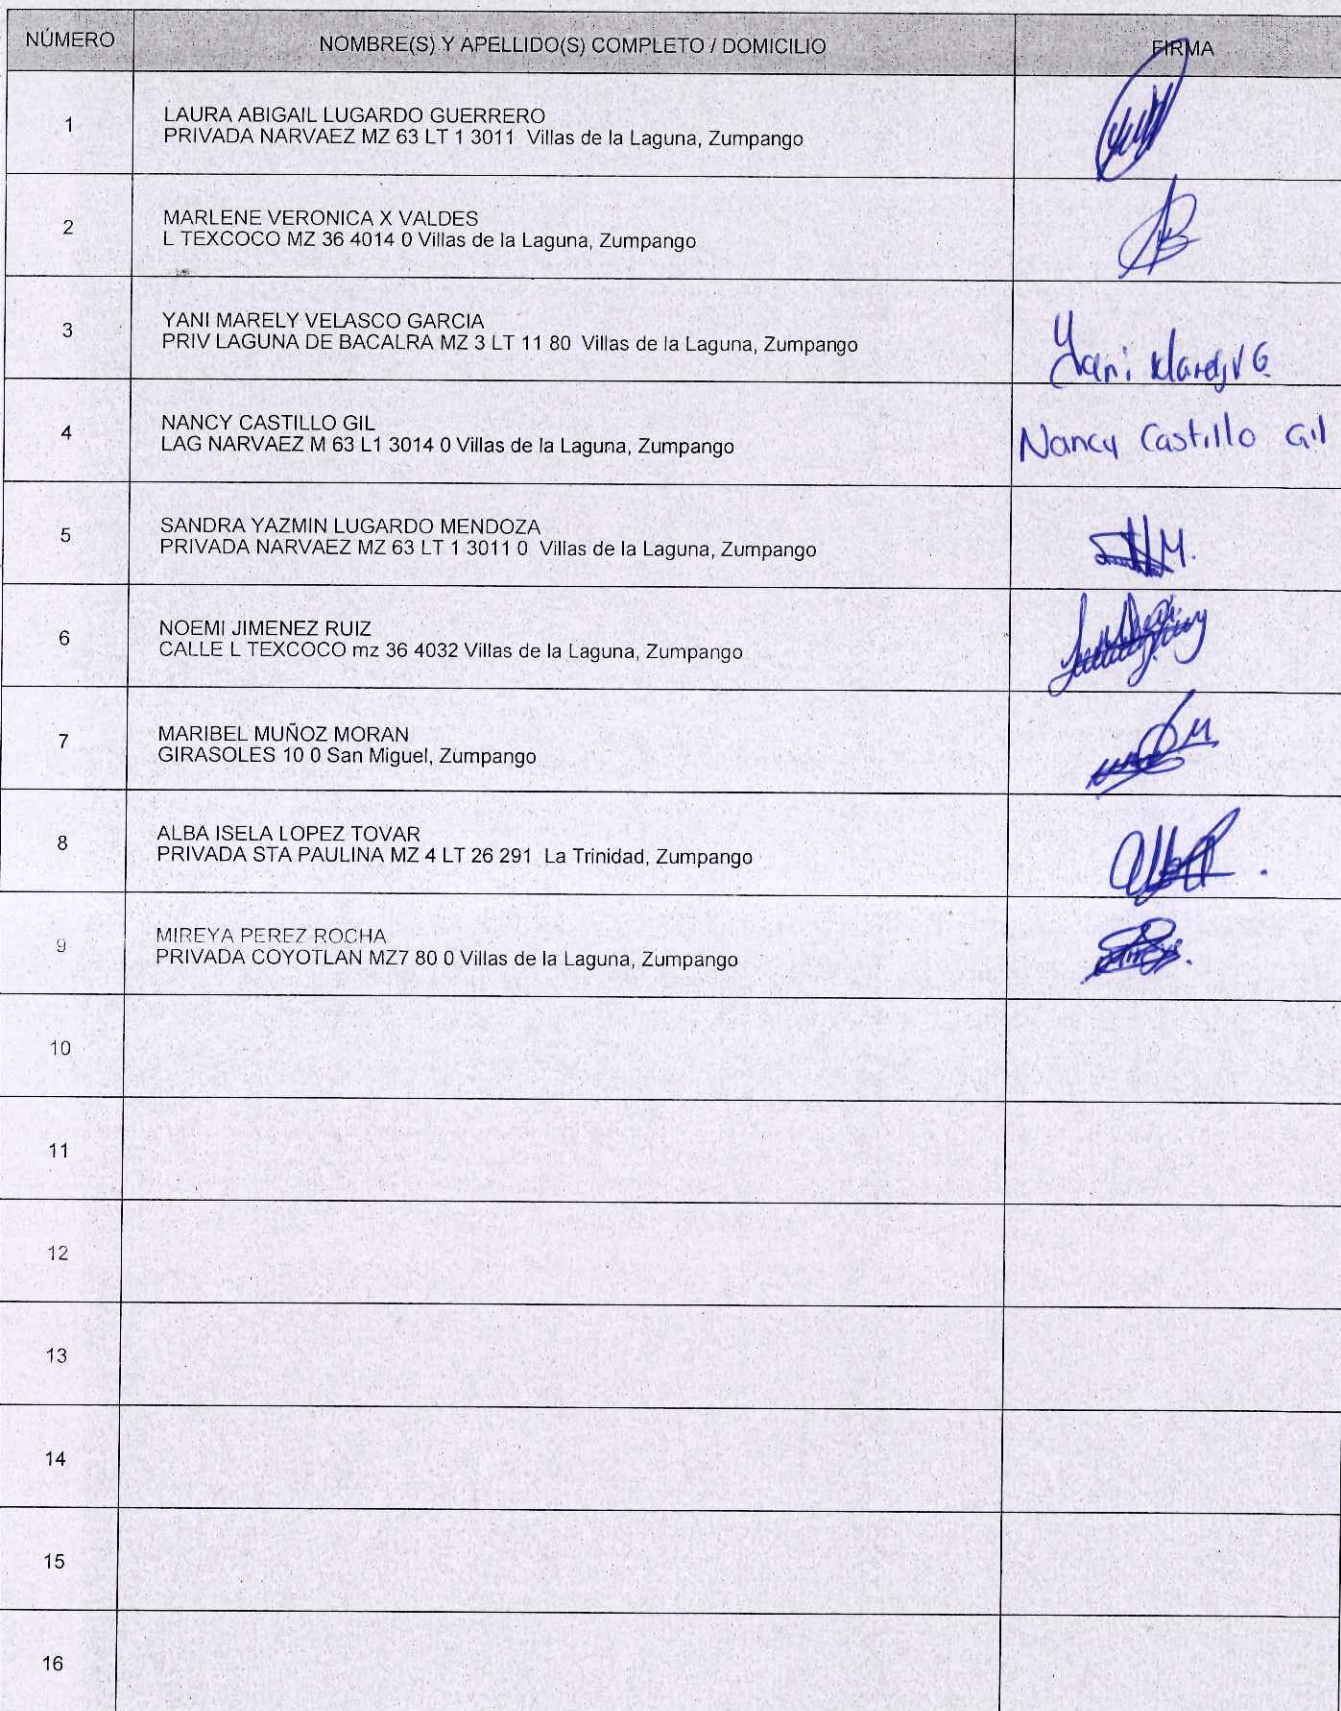 NÚMERO NOMBRE(S) Y APELLIDO(S) COMPLETO / DOMICILIO FIRMA
1 LAURA ABIGAIL LUGARDO GUERRERO
PRIVADA NARVAEZ MZ 63 LT 1 3011 Villas de la Laguna, Zumpango
2 MARLENE VERONICA X VALDES
L TEXCOCO MZ 36 4014 0 Villas de la Laguna, Zumpango
3 YANI MARELY VELASCO GARCIA
PRIV LAGUNA DE BACALRA MZ 3 LT 11 80 Villas de la Laguna, Zumpango
Yani Marely V G
4 NANCY CASTILLO GIL
LAG NARVAEZ M 63 L1 3014 0 Villas de la Laguna, Zumpango
Nancy Castillo Gil
5 SANDRA YAZMIN LUGARDO MENDOZA
PRIVADA NARVAEZ MZ 63 LT 1 3011 0 Villas de la Laguna, Zumpango
6 NOEMI JIMENEZ RUIZ
CALLE L TEXCOCO mz 36 4032 Villas de la Laguna, Zumpango
7 MARIBEL MUÑOZ MORAN
GIRASOLES 10 0 San Miguel, Zumpango
8 ALBA ISELA LOPEZ TOVAR
PRIVADA STA PAULINA MZ 4 LT 26 291 La Trinidad, Zumpango
9 MIREYA PEREZ ROCHA
PRIVADA COYOTLAN MZ7 80 0 Villas de la Laguna, Zumpango
10
11
12
13
14
15
16